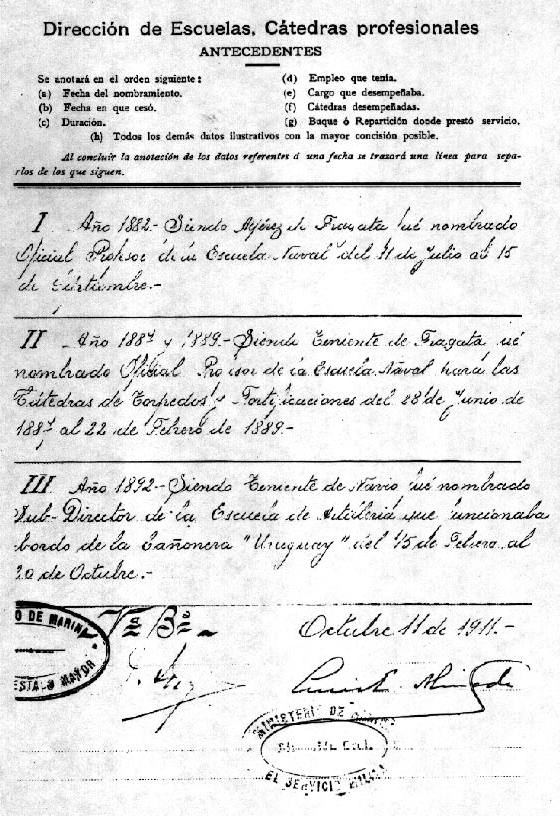 Dirección de Escuelas, Cátedras profesionales
ANTECEDENTES
Se anotará en el orden siguiente:
(a) Fecha del nombramiento.
(b) Fecha en que cesó.
(c) Duración.
(d) Empleo que tenía.
(e) Cargo que desempeñaba.
(f) Cátedras desempeñadas.
(g) Buque ó Repartición donde prestó servicio.
(h) Todos los demás datos ilustrativos con la mayor concisión posible.
Al concluir la anotación de los datos referentes á una fecha se trazará una línea para sepa-
rarlos de los que siguen.
I Año 1882.- Siendo Alférez de Fragata fué nombrado
Oficial Profesor de la Escuela Naval del 11 de Julio al 15
de Septiembre.-
II Año 1887 y 1889.- Siendo Teniente de Fragata fué
nombrado Oficial Profesor de la Escuela Naval para las
Cátedras de Torpedos y Fortificaciones del 28 de Junio de
1887 al 22 de Febrero de 1889.-
III Año 1892.- Siendo Teniente de Navío fué nombrado
Sub-Director de la Escuela de Artillería que funcionaba
bordo de la Cañonera "Uruguay" del 15 de Febrero al
20 de Octubre.-
O DE MARINA
ESTADO MAYOR
Vº Bº -
Octubre 11 de 1911.-
MINISTERIO DE MARINA
EL SERVICIO MILITAR